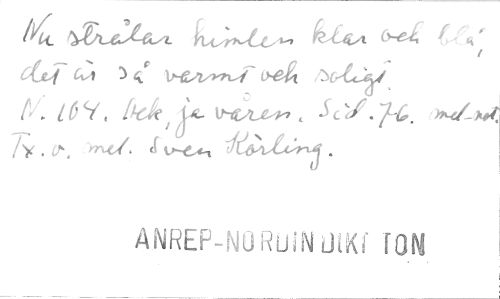 Nu strålar himlen klar och blå,
det är så varmt och soligt.
N. 104. Ack, ja våren. Sid. 76. mel-not.
Tx. o. mel. Sven Körling.
ANREP-NORDIN DIKT TON